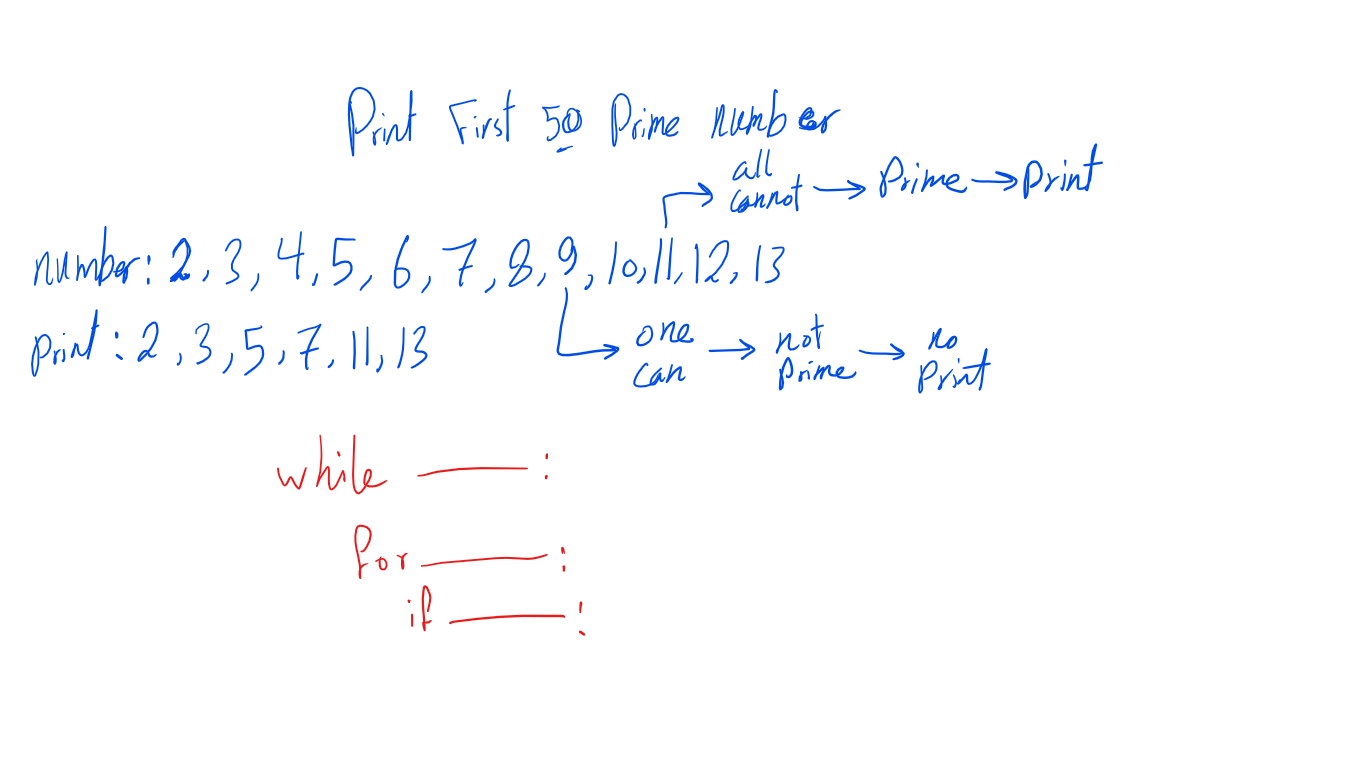 Print First 50 Prime number
all
cannot → Prime → Print
number: 2, 3, 4, 5, 6, 7, 8, 9, 10, 11, 12, 13
print: 2, 3, 5, 7, 11, 13
one
can → not
Prime → no
Print
while ——— :
for ——— :
if ——— :